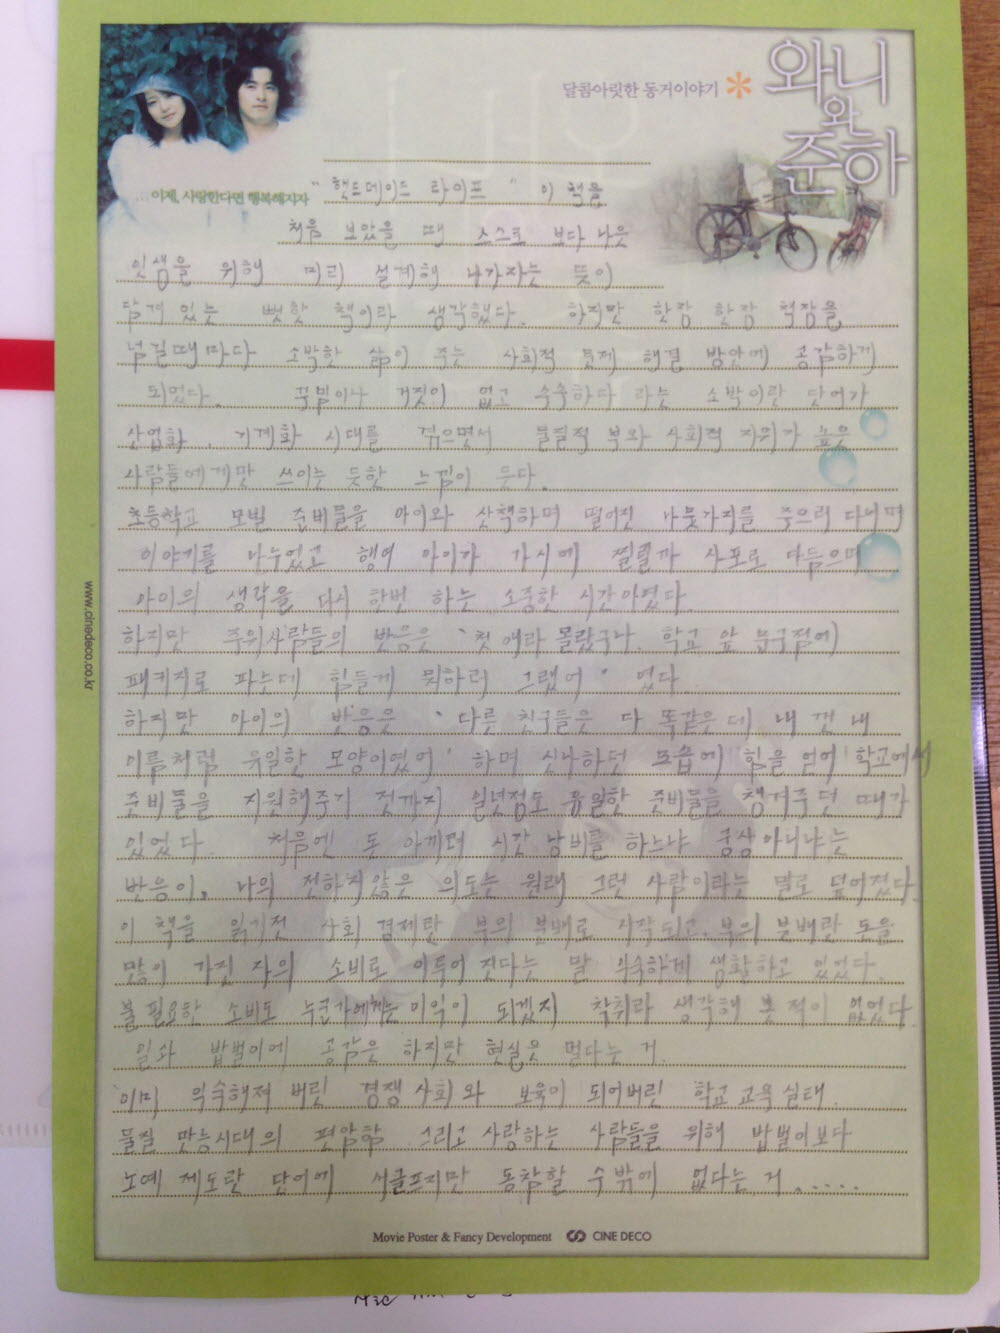 달콤아릿한 동거이야기 * 와니와 준하
...이제, 사랑한다면 행복해지자
"핸드메이드 라이프" 이 책을
처음 보았을 때 스스로 보다 나은
인생을 위해 미리 설계해 나가자는 뜻이
담겨 있는 뻔한 책이라 생각했다. 하지만 한장 한장 책장을
넘길때마다 소박한 삶이 주는 사회적 문제 해결 방안에 공감하게
되었다. 꾸밈이나 거짓이 없고 수수하다 라는 소박이란 단어가
산업화, 기계화 시대를 겪으면서 물질적 부와 사회적 지위가 높은
사람들에게만 쓰이는 듯한 느낌이 든다.
초등학교 모빌 준비물을 아이와 산책하며 떨어진 나뭇가지를 주으러 다니며
이야기를 나누었고 행여 아이가 가시에 찔릴까 사포로 다듬으며
아이의 생각을 다시 한번 하는 소중한 시간이였다.
하지만 주위사람들의 반응은 '첫 애라 몰랐구나. 학교 앞 문구점에
패키지로 파는데 힘들게 뭐하러 그랬어' 였다
하지만 아이의 반응은 '다른 친구들은 다 똑같은데 내 껀 내
이름처럼 유일한 모양이였어' 하며 신나하던 모습에 힘을 얻어 학교에서
준비물을 지원해주기 전까지 일년정도 유일한 준비물을 챙겨주던 때가
있었다. 처음엔 돈 아끼려 시간 낭비를 하느냐 궁상아니냐는
반응이, 나의 전하지않은 의도는 원래 그런 사람이라는 말로 덮어졌다.
이 책을 읽기전 사회 경제란 부의 분배로 시작되고, 부의 분배란 돈을
많이 가진 자의 소비로 이루어 진다는 말 익숙하게 생활하고 있었다.
불필요한 소비도 누군가에게는 이익이 되겠지 착취라 생각해 본 적이 없었다.
일과 밥벌이에 공감은 하지만 현실은 멀다는 거.
이미 익숙해져 버린 경쟁 사회와 보육이 되어버린 학교 교육 실태.
물질 만능시대의 편안함 그리고 사랑하는 사람들을 위해 밥벌이보다
노예 제도란 단어에 서글프지만 동참할 수 밖에 없다는 거.....
www.cinedeco.co.kr
Movie Poster & Fancy Development CINE DECO